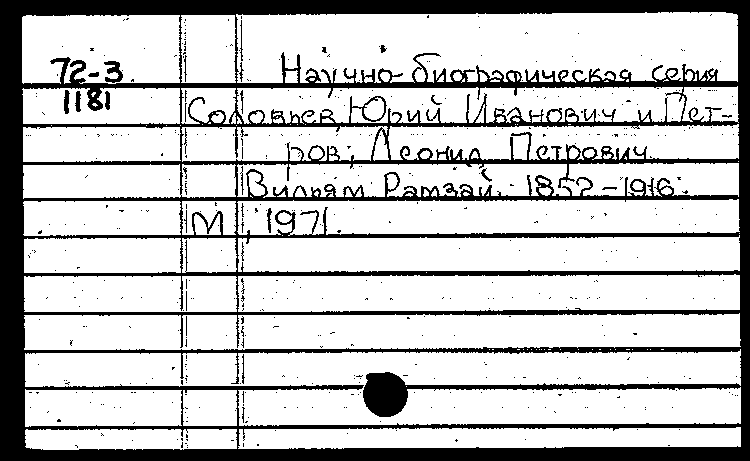 72-3
1181
Научно-биографическая серия
Соловьев, Юрий Иванович и Пет-
ров, Леонид Петрович
Вильям Рамзай. 1852-1916.
М., 1971.